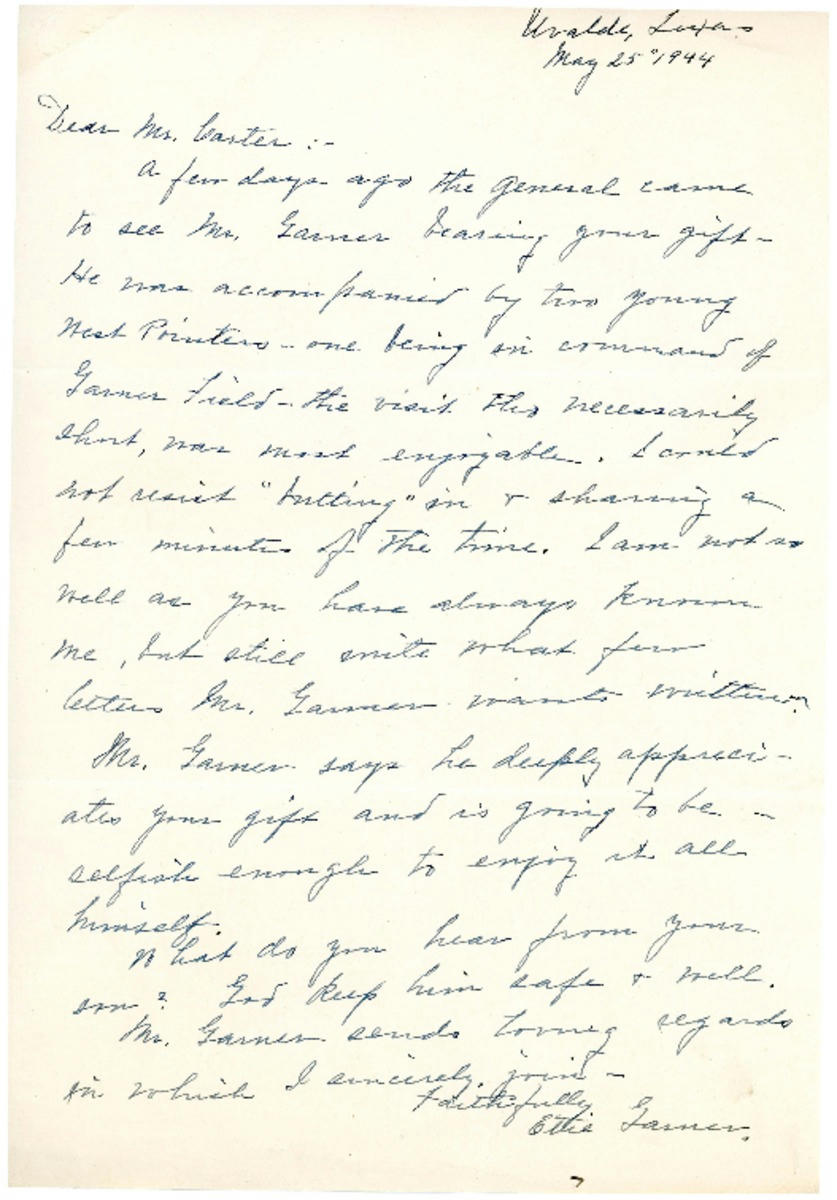 Uvalde, Texas
May 25" 1944
Dear Mr. Carter :-
A few days ago the General came
to see Mr. Garner bearing your gift -
He was accompanied by two young
West Pointers - one being in command of
Garner Field - the visit tho necessarily
short, was most enjoyable. I could
not resist "butting" in & sharing a
few minutes of the time. I am not so
well as you have always known
me, but still write what few
letters Mr. Garner wants written.
Mr. Garner says he deeply appreci-
ates your gift and is going to be -
selfish enough to enjoy it all
himself.
What do you hear from your
son? God keep him safe & well.
Mr. Garner sends loving regards
in which I sincerely join -
Faithfully
Ettie Garner.